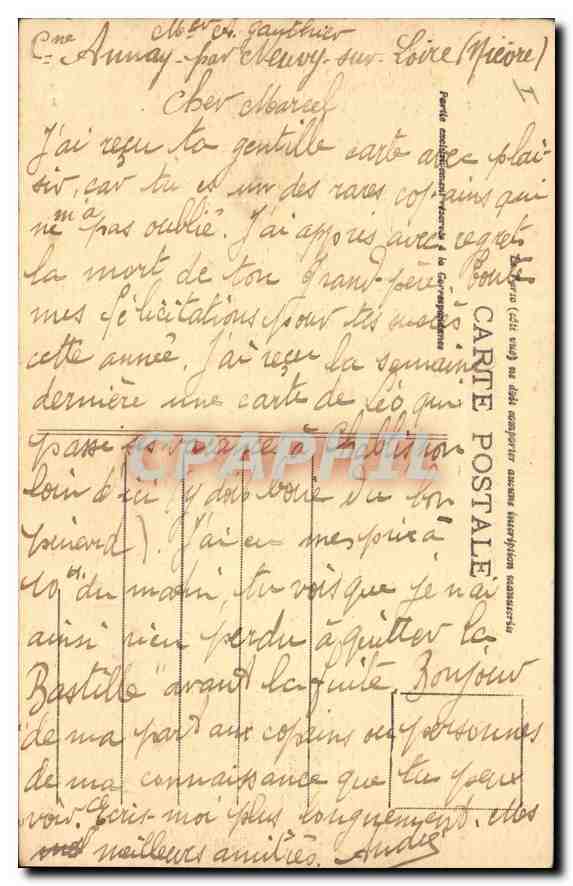 Mr A. Gauthier
Cne Annay par Neuvy-sur-Loire (Nièvre)
I
Cher Marcel
J'ai reçu ta gentille carte avec plai-
sir, car tu es un des rares copains qui
ne m'a pas oublié. J'ai appris avec regret
la mort de ton grand-père. Tous
mes félicitations pour tes
cette année. J'ai reçu la semaine
dernière une carte de Léo qui
passe ses vacances à Chablis non
loin d'ici (y doit boire du bon
pinard). J'ai eu mes prix à
10 H du matin, tu vois que je n'ai
ainsi rien perdu à quitter la
"Bastille" avant la fuite. Bonjour
de ma part aux copains ou personnes
de ma connaissance que tu peux
voir. Ecris-moi plus longuement. Mes
meilleurs amitiés. André
Partie exclusivement réservée à la Correspondance
CARTE POSTALE
Le Verso (côté vue) ne doit comporter aucune inscription manuscrite
CPAPHIL